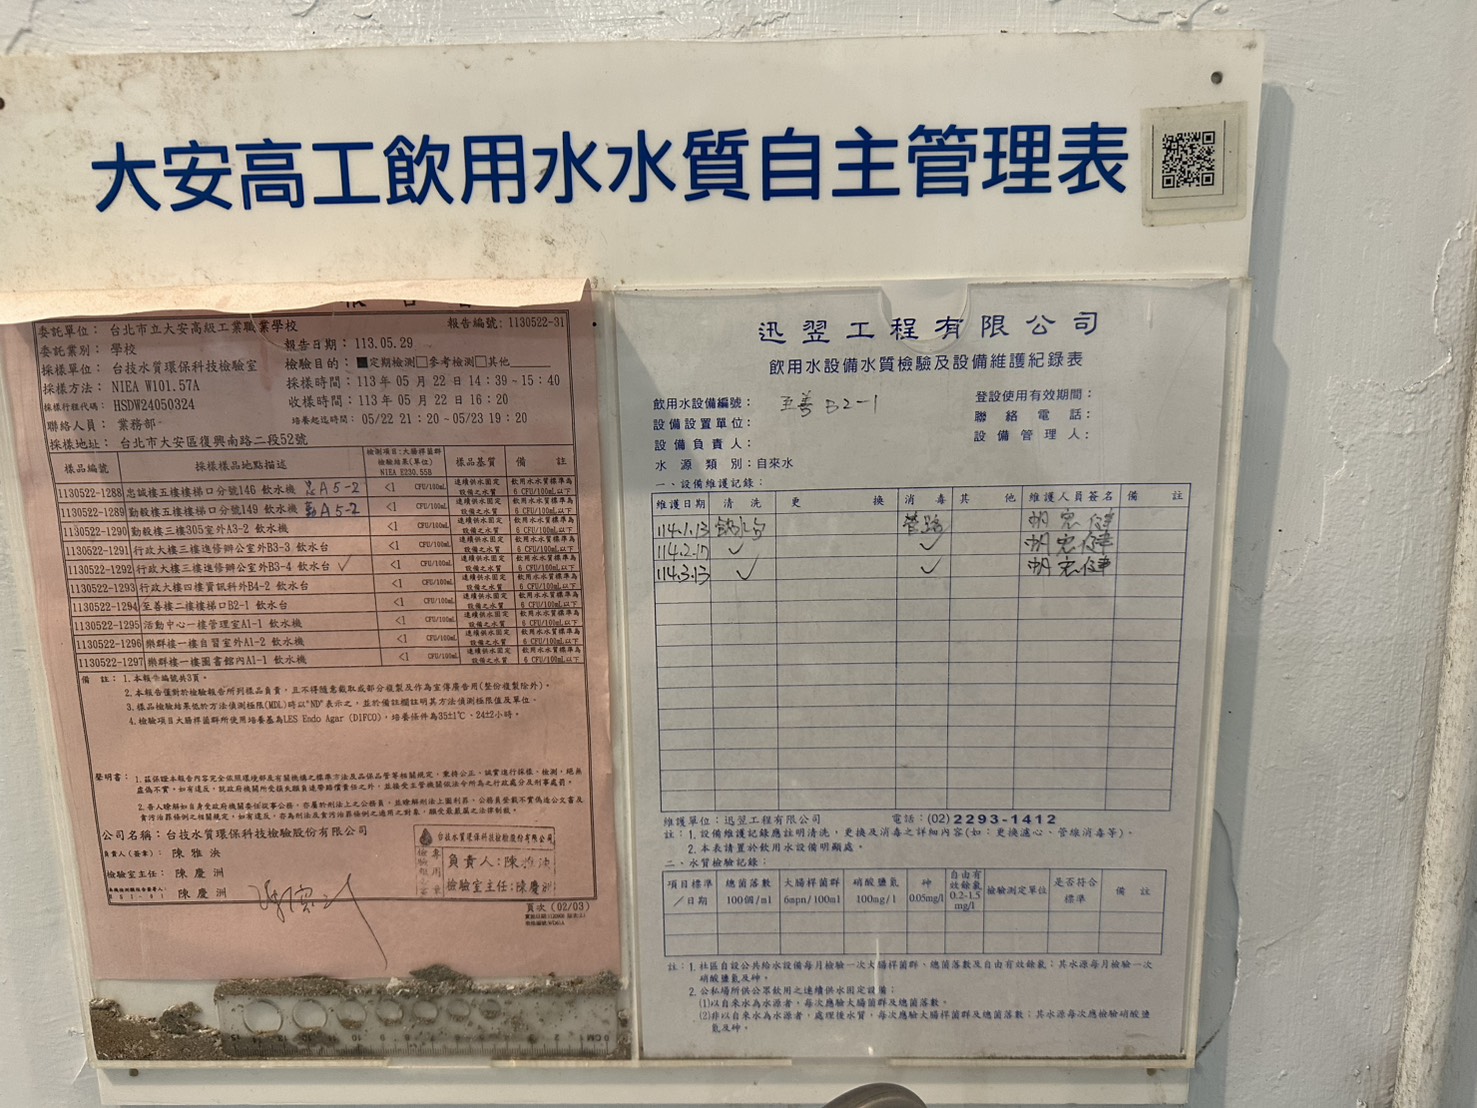 大安高工飲用水水質自主管理表
委託單位： 台北市立大安高級工業職業學校
報告編號: 1130522-31
委託業別： 學校
報告日期： 113.05.29
採樣單位： 台技水質環保科技檢驗室
檢驗目的： ■定期檢測□參考檢測□其他
採樣方法： NIEA W101.57A
採樣時間：113 年 05 月 22 日 14：39 ~ 15：40
採樣行程代碼： HSDW24050324
收樣時間：113 年 05 月 22 日 16：20
聯絡人員： 業務部
培養起迄時間： 05/22 21：20 ~ 05/23 19：20
採樣地址： 台北市大安區復興南路二段52號
樣品編號 採樣樣品地點描述 檢測項目:大腸桿菌群 檢驗結果(單位) NIEA E230.55B 樣品基質 備 註
1130522-1288 忠誠樓五樓樓梯口分號146 飲水機 忠A5-2 <1 CFU/100mL 連續供水固定設備之水質 飲用水水質標準為 6 CFU/100mL以下
1130522-1289 勤毅樓五樓樓梯口分號149 飲水機 勤A5-2 <1 CFU/100mL 連續供水固定設備之水質 飲用水水質標準為 6 CFU/100mL以下
1130522-1290 勤毅樓三樓305室外A3-2 飲水機 <1 CFU/100mL 連續供水固定設備之水質 飲用水水質標準為 6 CFU/100mL以下
1130522-1291 行政大樓三樓進修辦公室外B3-3 飲水台 <1 CFU/100mL 連續供水固定設備之水質 飲用水水質標準為 6 CFU/100mL以下
1130522-1292 行政大樓三樓進修辦公室外B3-4 飲水台 ✓ <1 CFU/100mL 連續供水固定設備之水質 飲用水水質標準為 6 CFU/100mL以下
1130522-1293 行政大樓四樓資訊科外B4-2 飲水台 <1 CFU/100mL 連續供水固定設備之水質 飲用水水質標準為 6 CFU/100mL以下
1130522-1294 至善樓二樓樓梯口B2-1 飲水台 <1 CFU/100mL 連續供水固定設備之水質 飲用水水質標準為 6 CFU/100mL以下
1130522-1295 活動中心一樓管理室A1-1 飲水機 <1 CFU/100mL 連續供水固定設備之水質 飲用水水質標準為 6 CFU/100mL以下
1130522-1296 樂群樓一樓自習室外A1-2 飲水機 <1 CFU/100mL 連續供水固定設備之水質 飲用水水質標準為 6 CFU/100mL以下
1130522-1297 樂群樓一樓圖書館內A1-1 飲水機 <1 CFU/100mL 連續供水固定設備之水質 飲用水水質標準為 6 CFU/100mL以下
備 註： 1.本報告編號共3頁。
2.本報告僅對於檢驗報告所列樣品負責，且不得隨意截取或部分複製及作為宣傳廣告用(整份複製除外)。
3.樣品檢驗結果低於方法偵測極限(MDL)時以"ND"表示之，並於備註欄註明其方法偵測極限值及單位。
4.檢驗項目大腸桿菌群所使用培養基為LES Endo Agar (DIFCO)，培養條件為35±1℃、24±2小時。
聲明書： 1.茲保證本報告內容完全依照環境部及有關機構之標準方法及品保品管等相關規定，秉持公正、誠實進行採樣、檢測，絕無
虛偽不實，如有違反，就政府機關所受損失願負連帶賠償責任之外，並接受主管機關依法令所為之行政處分及刑事處罰。
2.吾人瞭解如自身受政府機關委任從事公務，亦屬於刑法上之公務員，並瞭解刑法上圖利罪、公務員登載不實偽造公文書及
貪污治罪條例之相關規定，如有違反，亦為刑法及貪污治罪條例之適用之對象，願受最嚴厲之法律制裁。
公司名稱：台技水質環保科技檢驗股份有限公司
負責人(簽章)： 陳雅泱
檢驗室主任： 陳慶洲
陳慶洲
台技水質環保科技檢驗股份有限公司
檢驗報告專用章
負責人:陳雅泱
檢驗室主任:陳慶洲
頁次 (02/03)
迅翌工程有限公司
飲用水設備水質檢驗及設備維護紀錄表
飲用水設備編號： 至善 B2-1
登設使用有效期間：
設備設置單位：
聯絡電話：
設備負責人：
設備管理人：
水源類別：自來水
一、設備維護記錄：
維護日期 清 洗 更 換 消 毒 其 他 維護人員簽名 備 註
114.1.13 飲水台 管路
114.2.17 ✓ ✓
114.3.13 ✓ ✓
維護單位：迅翌工程有限公司 電話：(02)2293-1412
註：1.設備維護記錄應註明清洗，更換及消毒之詳細內容(如：更換濾心、管線消毒等)。
2.本表請置於飲用水設備明顯處。
二、水質檢驗記錄：
項目標準／日期 總菌落數 100個/ml 大腸桿菌群 6mpn/100ml 硝酸鹽氮 100mg/l 砷 0.05mg/l 自由有效餘氯 0.2-1.5 mg/l 檢驗測定單位 是否符合標準 備 註
註：1.社區自設公共給水設備每月檢驗一次大腸桿菌群、總菌落數及自由有效餘氯；其水源每月檢驗一次
硝酸鹽氮及砷。
2.公私場所供公眾飲用之連續供水固定設備：
(1)以自來水為水源者，每次應驗大腸菌群及總菌落數。
(2)非以自來水為水源者，處理後水質，每次應驗大腸桿菌群及總菌落數；其水源每次應檢驗硝酸鹽
氮及砷。